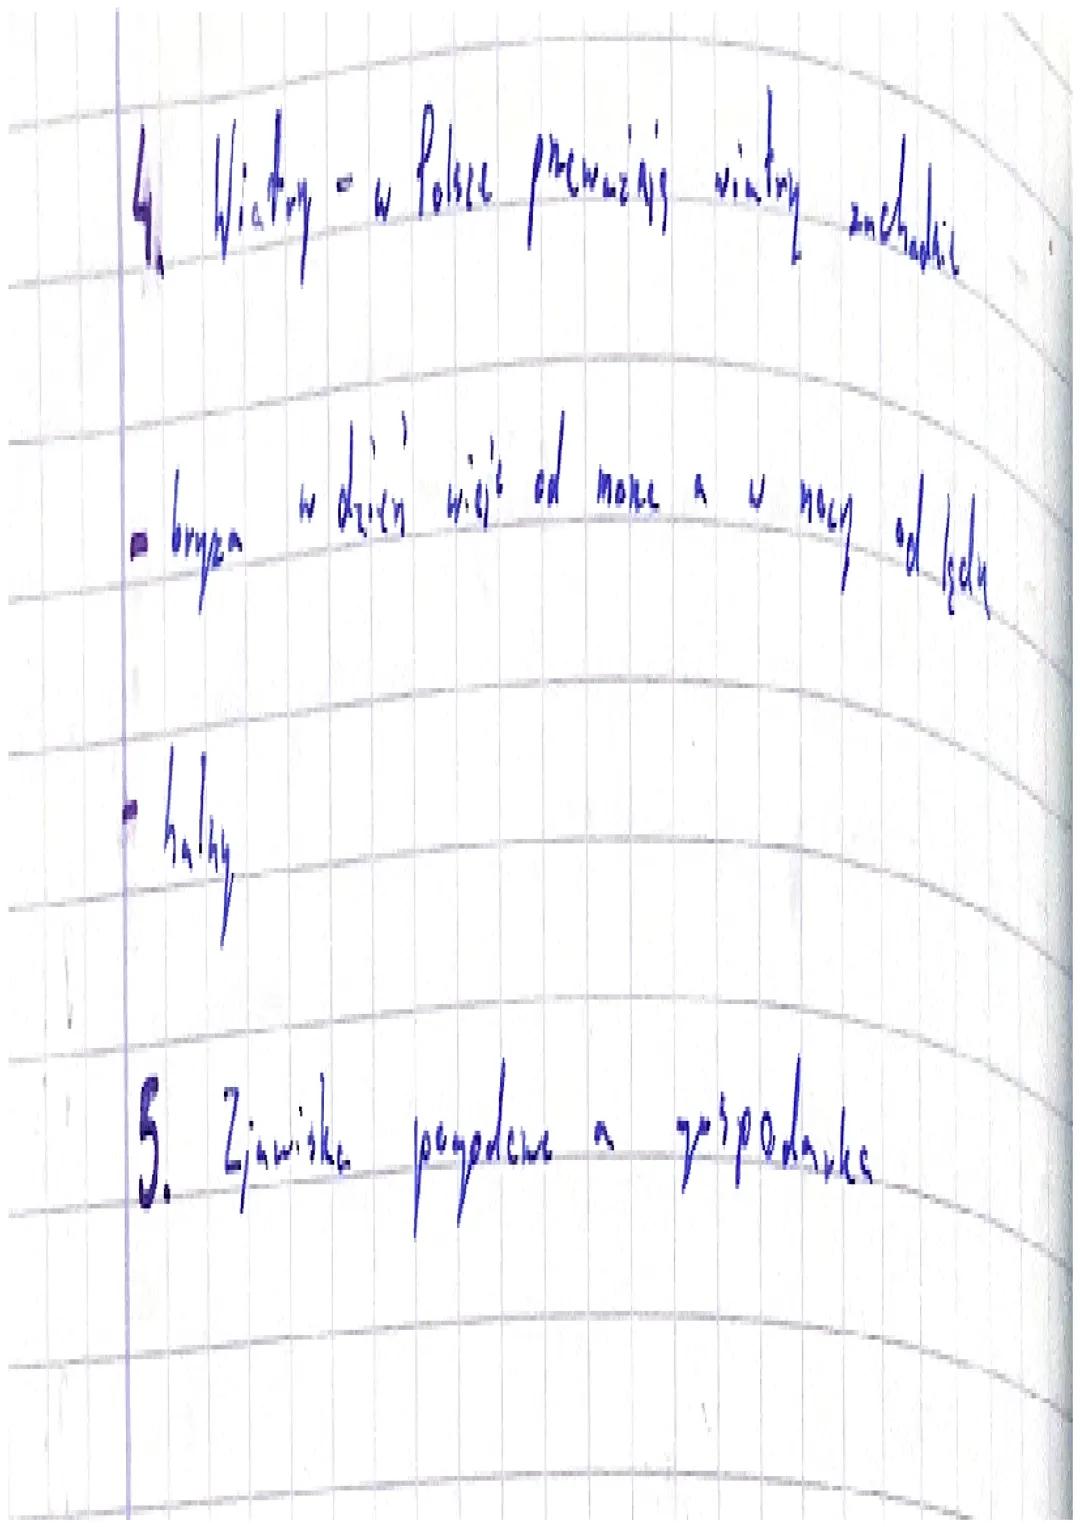 4. Wiatry - w Polsce przeważają wiatry zachodnie
- bryza w dzień wieje od morze a w nocy od lądu
- halny
5. Zjawiska pogodowe a gospodarka